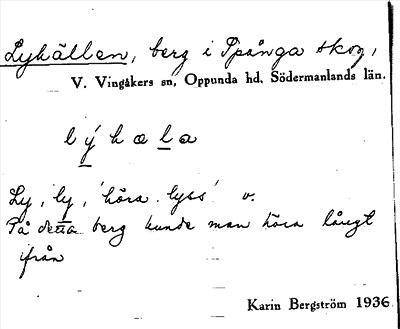 Lyhällen, berg i Spånga skog,
V. Vingåkers sn, Oppunda hd, Södermanlands län.
lýhæla
Ly, ly, 'höra. lyss' v.
På detta berg kunde man höra långt
ifrån
Karin Bergström 1936